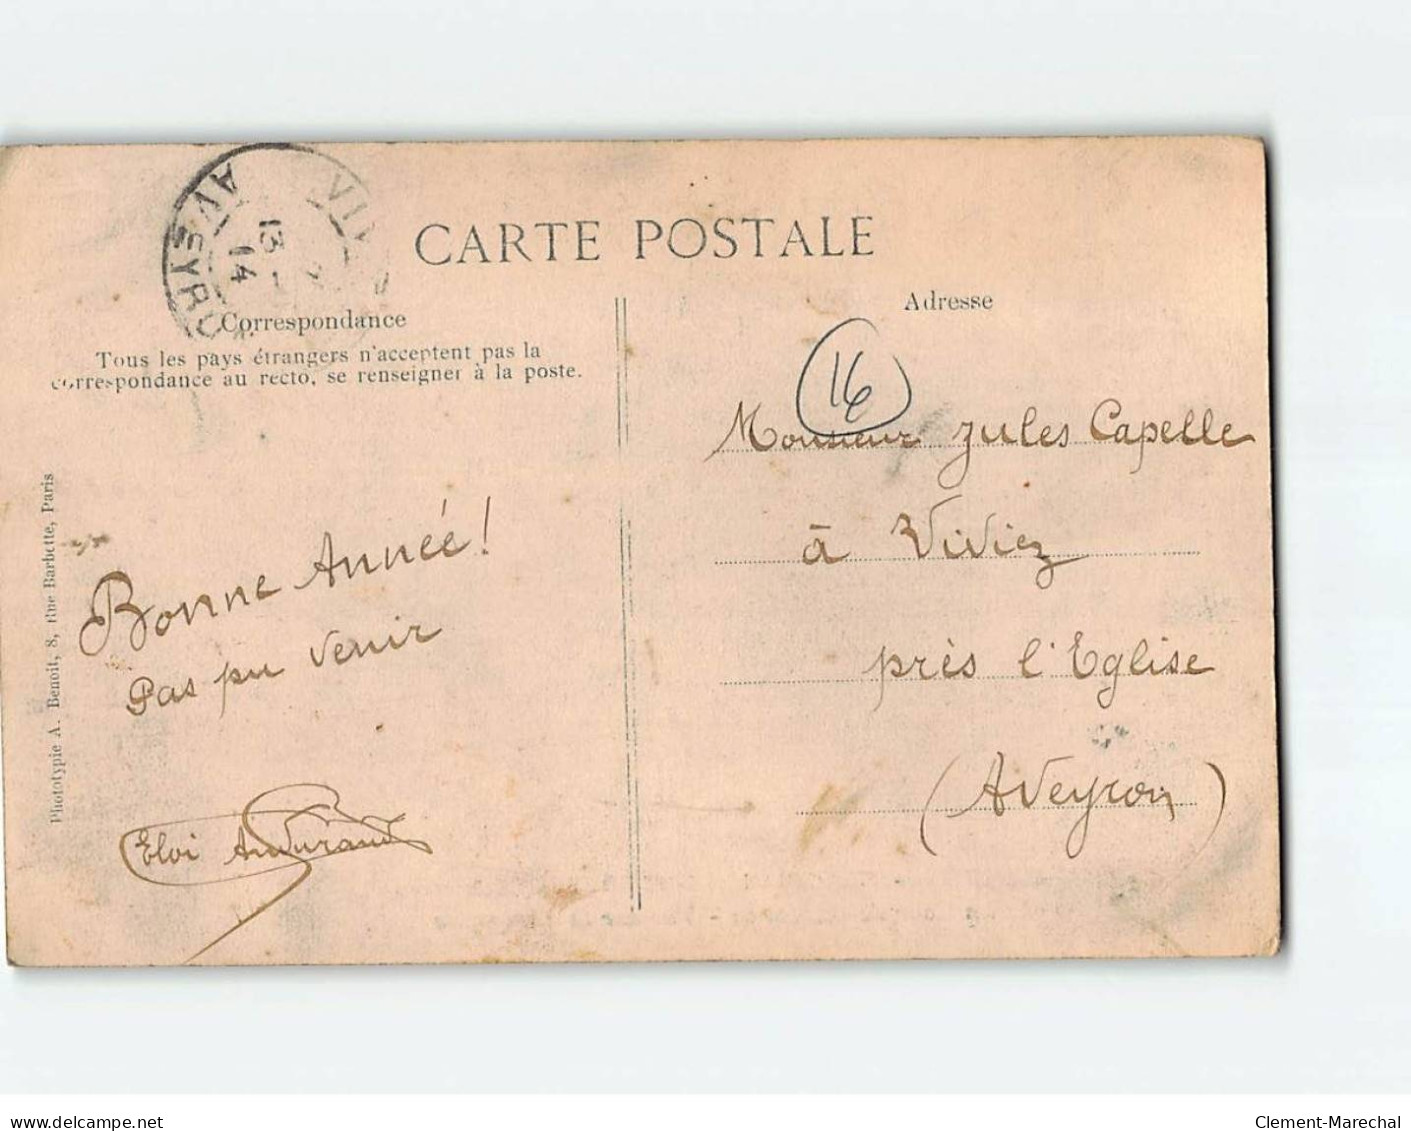 VIV
AVEYRON
13
14
CARTE POSTALE
Correspondance
Tous les pays étrangers n'acceptent pas la
correspondance au recto, se renseigner à la poste.
Adresse
16
Monsieur Jules Capelle
à Viviez
près l'Eglise
(Aveyron)
Bonne Année!
Pas pu venir
Eloi Andurand
Phototypie A. Benoit, 8, Rue Barbette, Paris
www.delcampe.net
Clement-Marechal